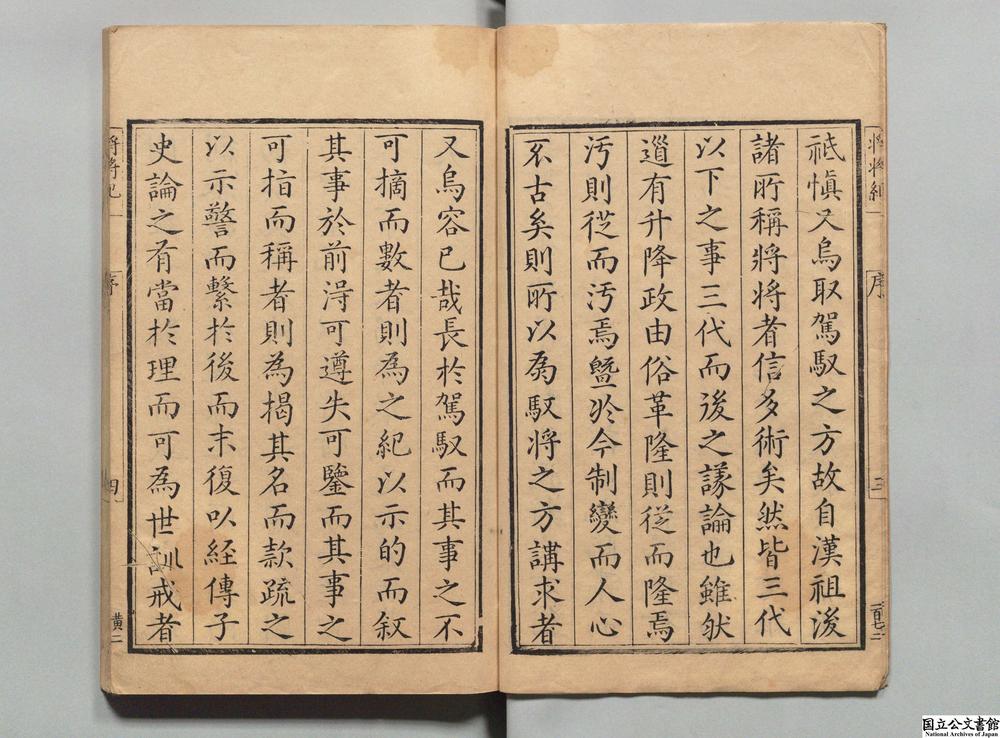 祗慎又烏取駕馭之方故自漢祖後
諸所稱將將者信多術矣然皆三代
以下之事三代而後之議論也雖然
道有升降政由俗革隆則從而隆焉
汚則從而汚焉暨於今制變而人心
不古矣則所以為馭將之方講求者
將將紀
序
三
百七二
又烏容已哉長於駕馭而其事之不
可摘而數者則為之紀以示的而叙
其事於前淂可遵失可鑒而其事之
可指而稱者則為揭其名而款疏之
以示警而繫於後而末復以經傳子
史論之有當於理而可為世訓戒者
將將紀
序
四
黄二
国立公文書館
National Archives of Japan